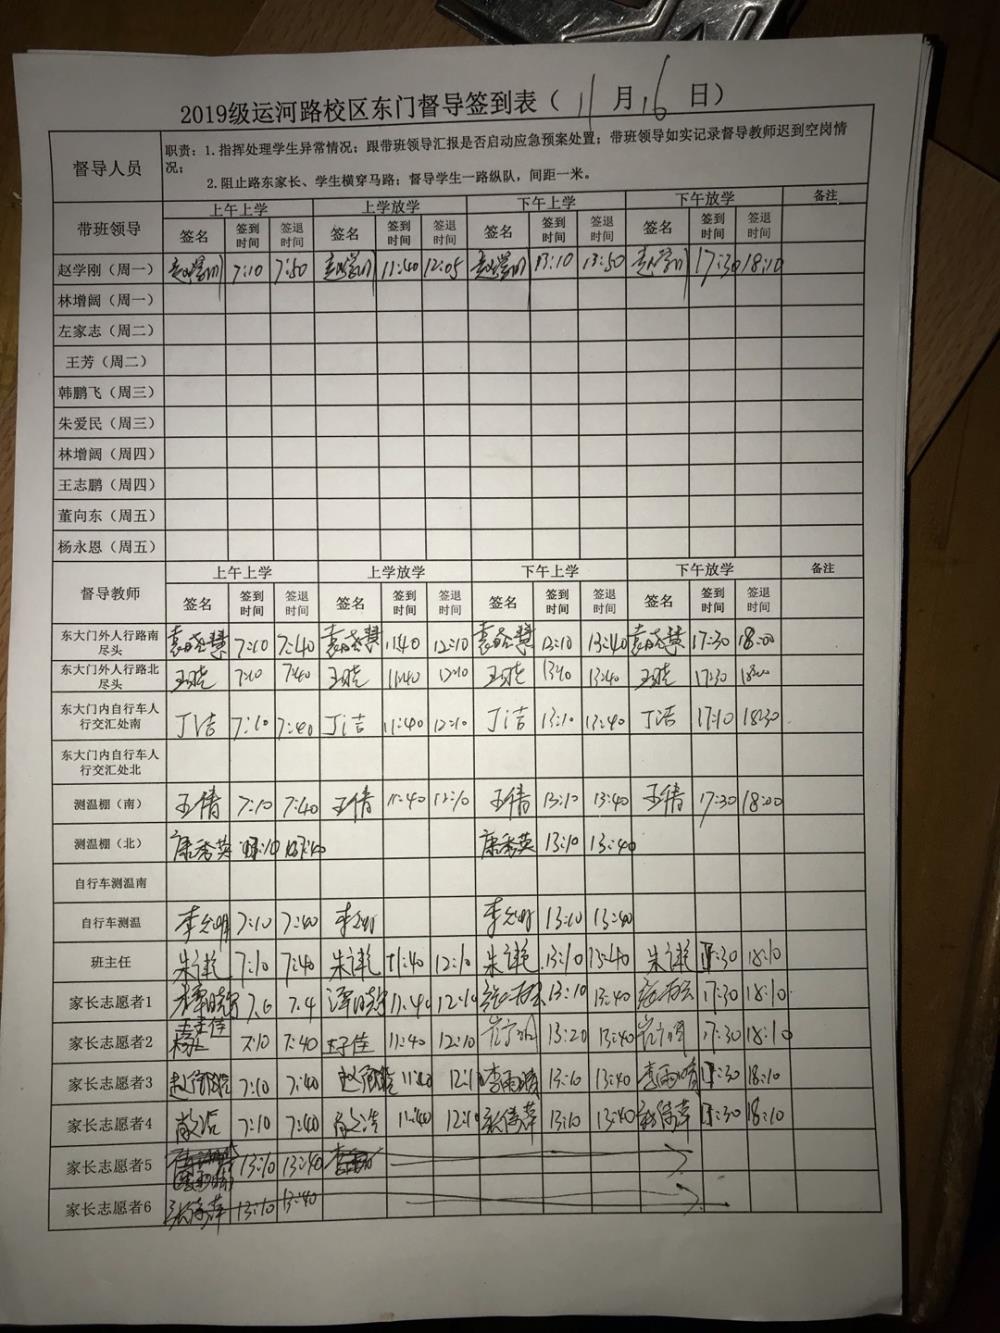 2019级运河路校区东门督导签到表（ 11 月 16 日）
督导人员
职责：1.指挥处理学生异常情况；跟带班领导汇报是否启动应急预案处置；带班领导如实记录督导教师迟到空岗情
况；
2.阻止路东家长、学生横穿马路；督导学生一路纵队，间距一米。
带班领导 上午上学 上学放学 下午上学 下午放学 备注
签名 签到时间 签退时间 签名 签到时间 签退时间 签名 签到时间 签退时间 签名 签到时间 签退时间
赵学刚（周一） 赵学刚 7:10 7:50 赵学刚 11:40 12:05 赵学刚 13:10 13:50 赵学刚 17:30 18:10
林增阔（周一）
左家志（周二）
王芳（周二）
韩鹏飞（周三）
朱爱民（周三）
林增阔（周四）
王志鹏（周四）
董向东（周五）
杨永恩（周五）
督导教师 上午上学 上学放学 下午上学 下午放学 备注
签名 签到时间 签退时间 签名 签到时间 签退时间 签名 签到时间 签退时间 签名 签到时间 签退时间
东大门外人行路南尽头 7:10 7:40 11:40 12:10 13:40 17:30 18:00
东大门外人行路北尽头 王晓 7:10 7:40 王晓 11:40 12:10 王晓 13:10 13:40 王晓 17:30 18:00
东大门内自行车人行交汇处南 丁洁 7:10 7:40 丁洁 11:40 12:10 丁洁 13:10 13:40 丁洁 17:10 18:30
东大门内自行车人行交汇处北
测温棚（南） 王倩 7:10 7:40 王倩 11:40 12:10 王倩 13:10 13:40 王倩 17:30 18:00
测温棚（北） 康秀英 康秀英 13:10 13:40
自行车测温南
自行车测温 7:10 7:40 13:10 13:40
班主任 7:10 7:40 11:40 12:10 13:10 13:40 18:10
家长志愿者1 7.6 7.4 13:10 13:40 17:30 18:10
家长志愿者2 7:10 7:40 11:40 12:10 13:20 13:40 17:30 18:10
家长志愿者3 7:10 7:40 11:40 李雨晴 13:10 13:40 李雨晴 18:10
家长志愿者4 7:10 7:40 11:40 13:10 13:40 18:10
家长志愿者5 13:10 13:40
家长志愿者6 13:10 13:40